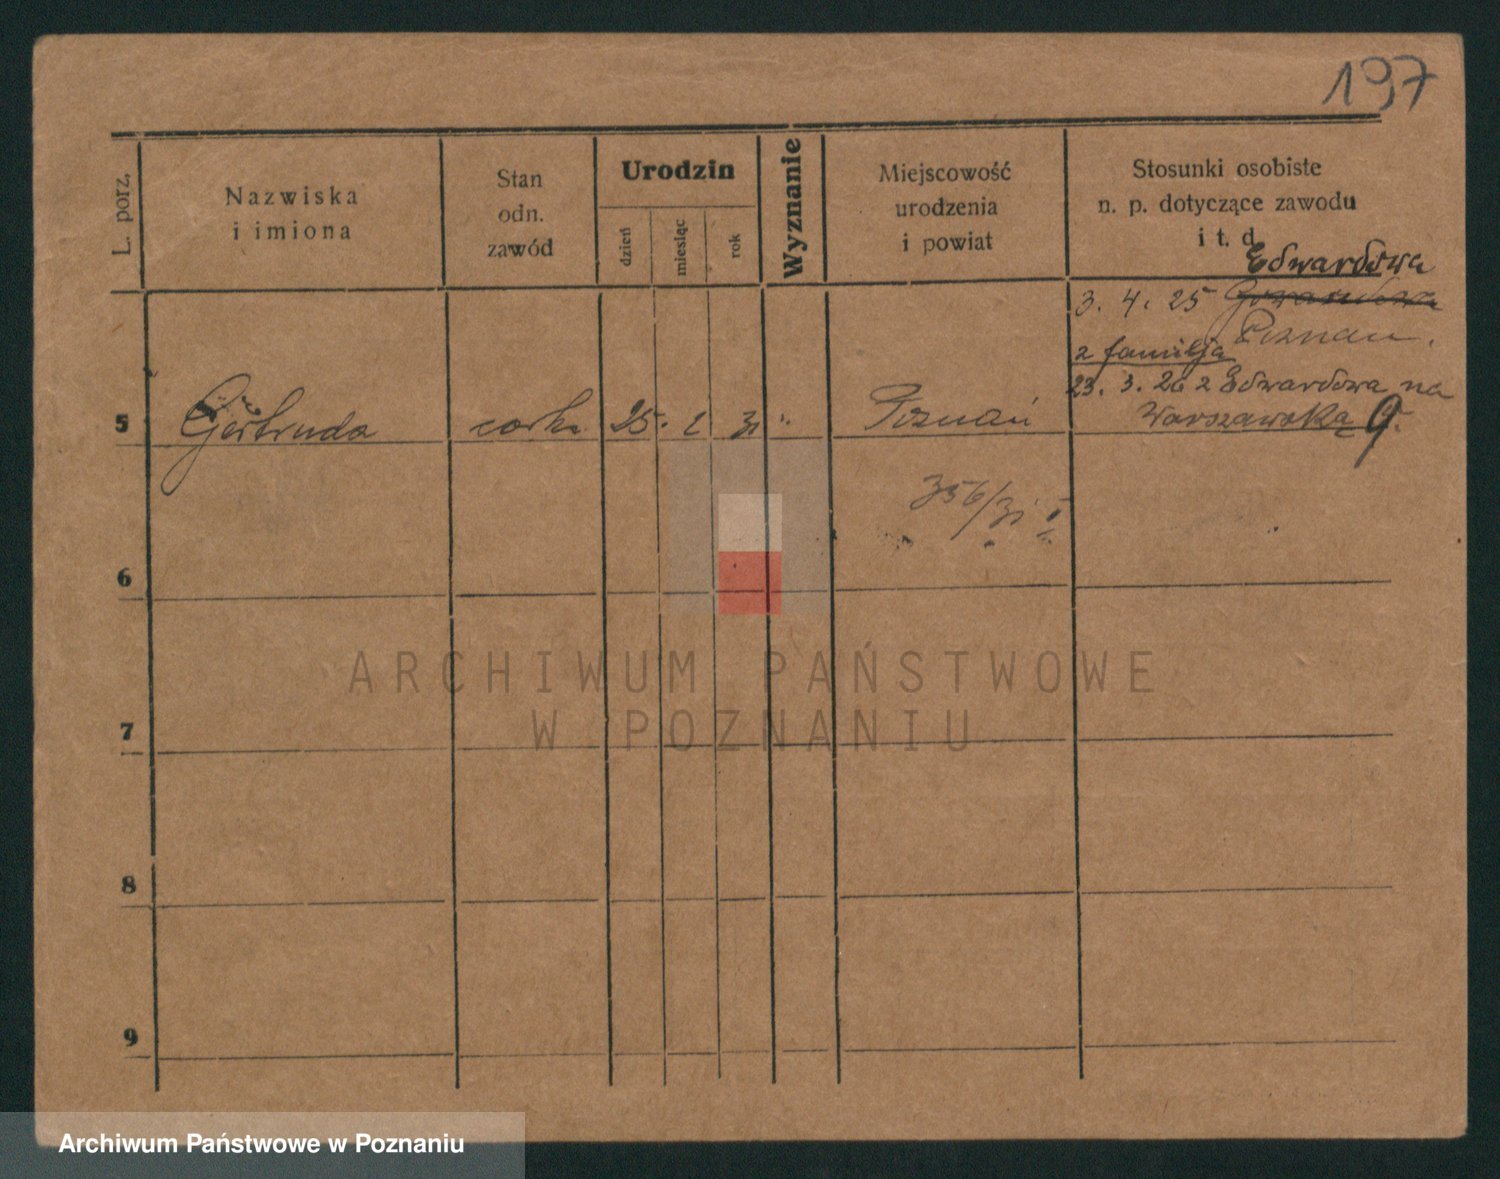 197
L. porz.
Nazwiska
i imiona
Stan
odn.
zawód
Urodzin
dzień
miesiąc
rok
Wyznanie
Miejscowość
urodzenia
i powiat
Stosunki osobiste
n. p. dotyczące zawodu
i t. d.
Edwardowa
3. 4. 25
Poznań.
z familją
23. 3. 26 z Edwardowa na
Warszawską 9.
5 Gertruda córka 25. 2 31 " Poznań
356/31 I
6
7
8
9
ARCHIWUM PAŃSTWOWE
W POZNANIU
Archiwum Państwowe w Poznaniu